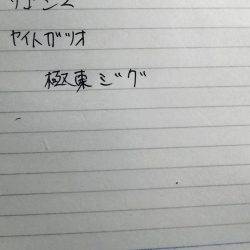 ヤイトガツオ
極東ジグ